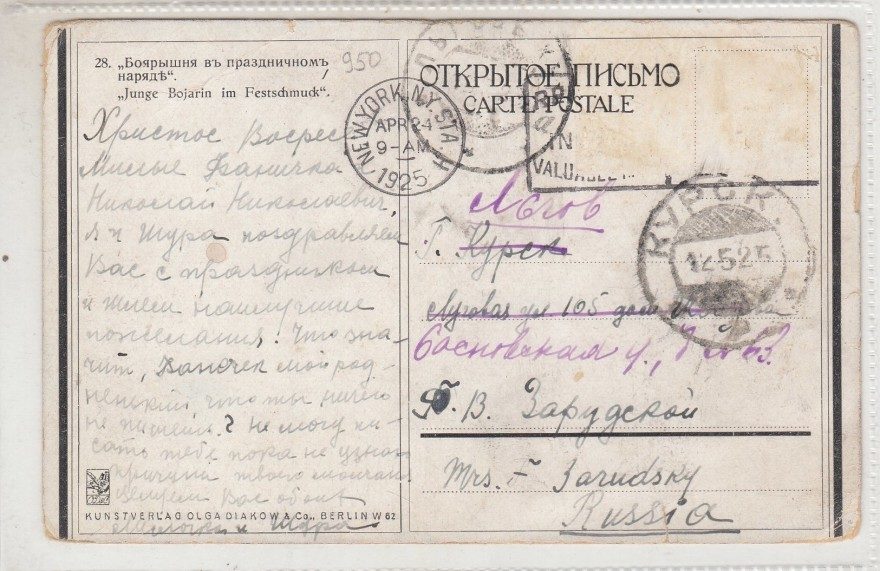 28. „Боярышня въ праздничномъ
нарядѣ“.
„Junge Bojarin im Festschmuck“.
950
ОТКРЫТОЕ ПИСЬМО
CARTE POSTALE
NEW YORK, N.Y. STA.
APR 24
9-AM
1925
IN
КУРСК
12525
Христос Воскресе
Милые Фаничка
Николай Николаевич,
Я и Шура поздравляем
Вас с праздником
и шлем наилучшие
пожелания. Что зна-
чит, мой род-
ненький что ты ничего
не пишешь? Не могу пи-
сать тебе пока не узнаю
причины твоего молчания
Целуем Вас обоих
и Шура
Льгов
Г. Курск
Луговая ул 105 дом
Сосновская у.,
Ф. В. Зарудской
Mrs. F Zarudsky
Russia
KUNSTVERLAG OLGA DIAKOW & Co., BERLIN W 62